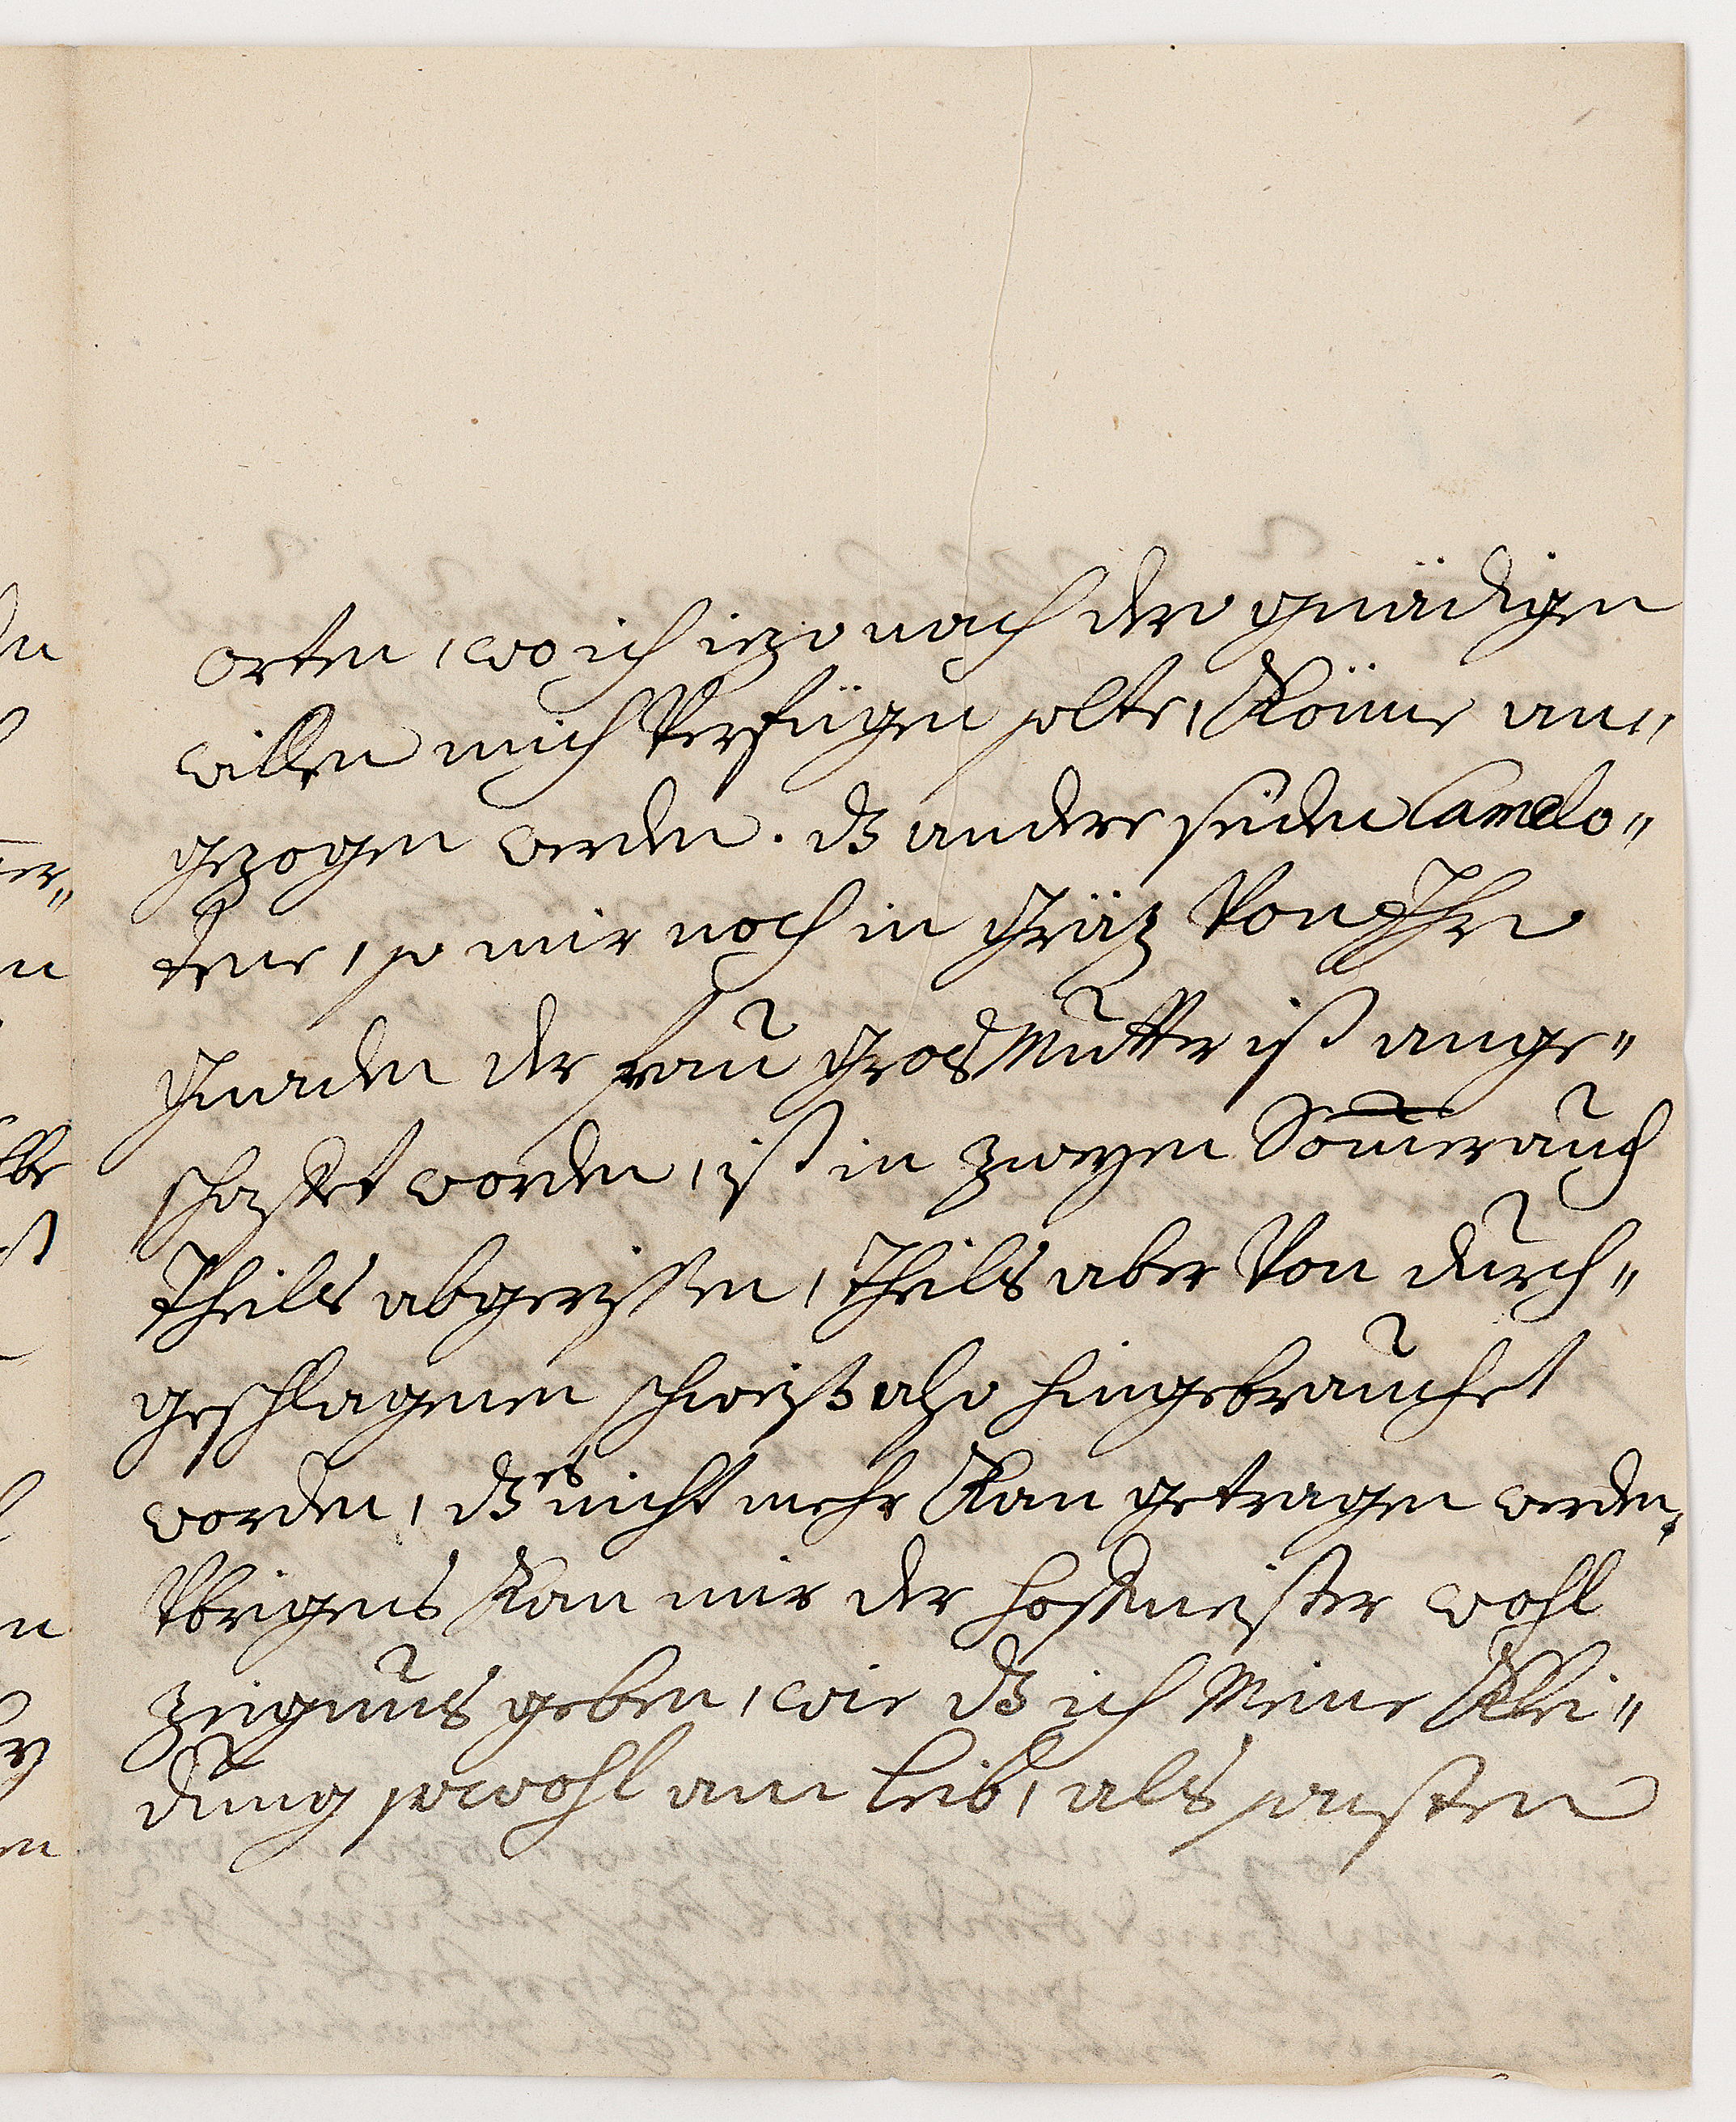 orten, wo ich iezo nach dero gnädigen
willen mich Verfügen solte, Könne an„
gezogen werden. dß andere seiden Camelo„
tene, so mir noch in Gräz Von Ihro
Gnaden der frau GrosMutter ist ange„
schafet worden, ist in zweyen Somer auch
theils abgerissen, theils aber Von durch„
geschlagenen schweiß also hingebrauchet
worden, dß es nicht mehr Kan getragen werden,
Vbrigens Kan mir der hoffmeister wohl
zeignus geben, wie dß ich Meine Klei„
dung sowohl am leib, als sonsten